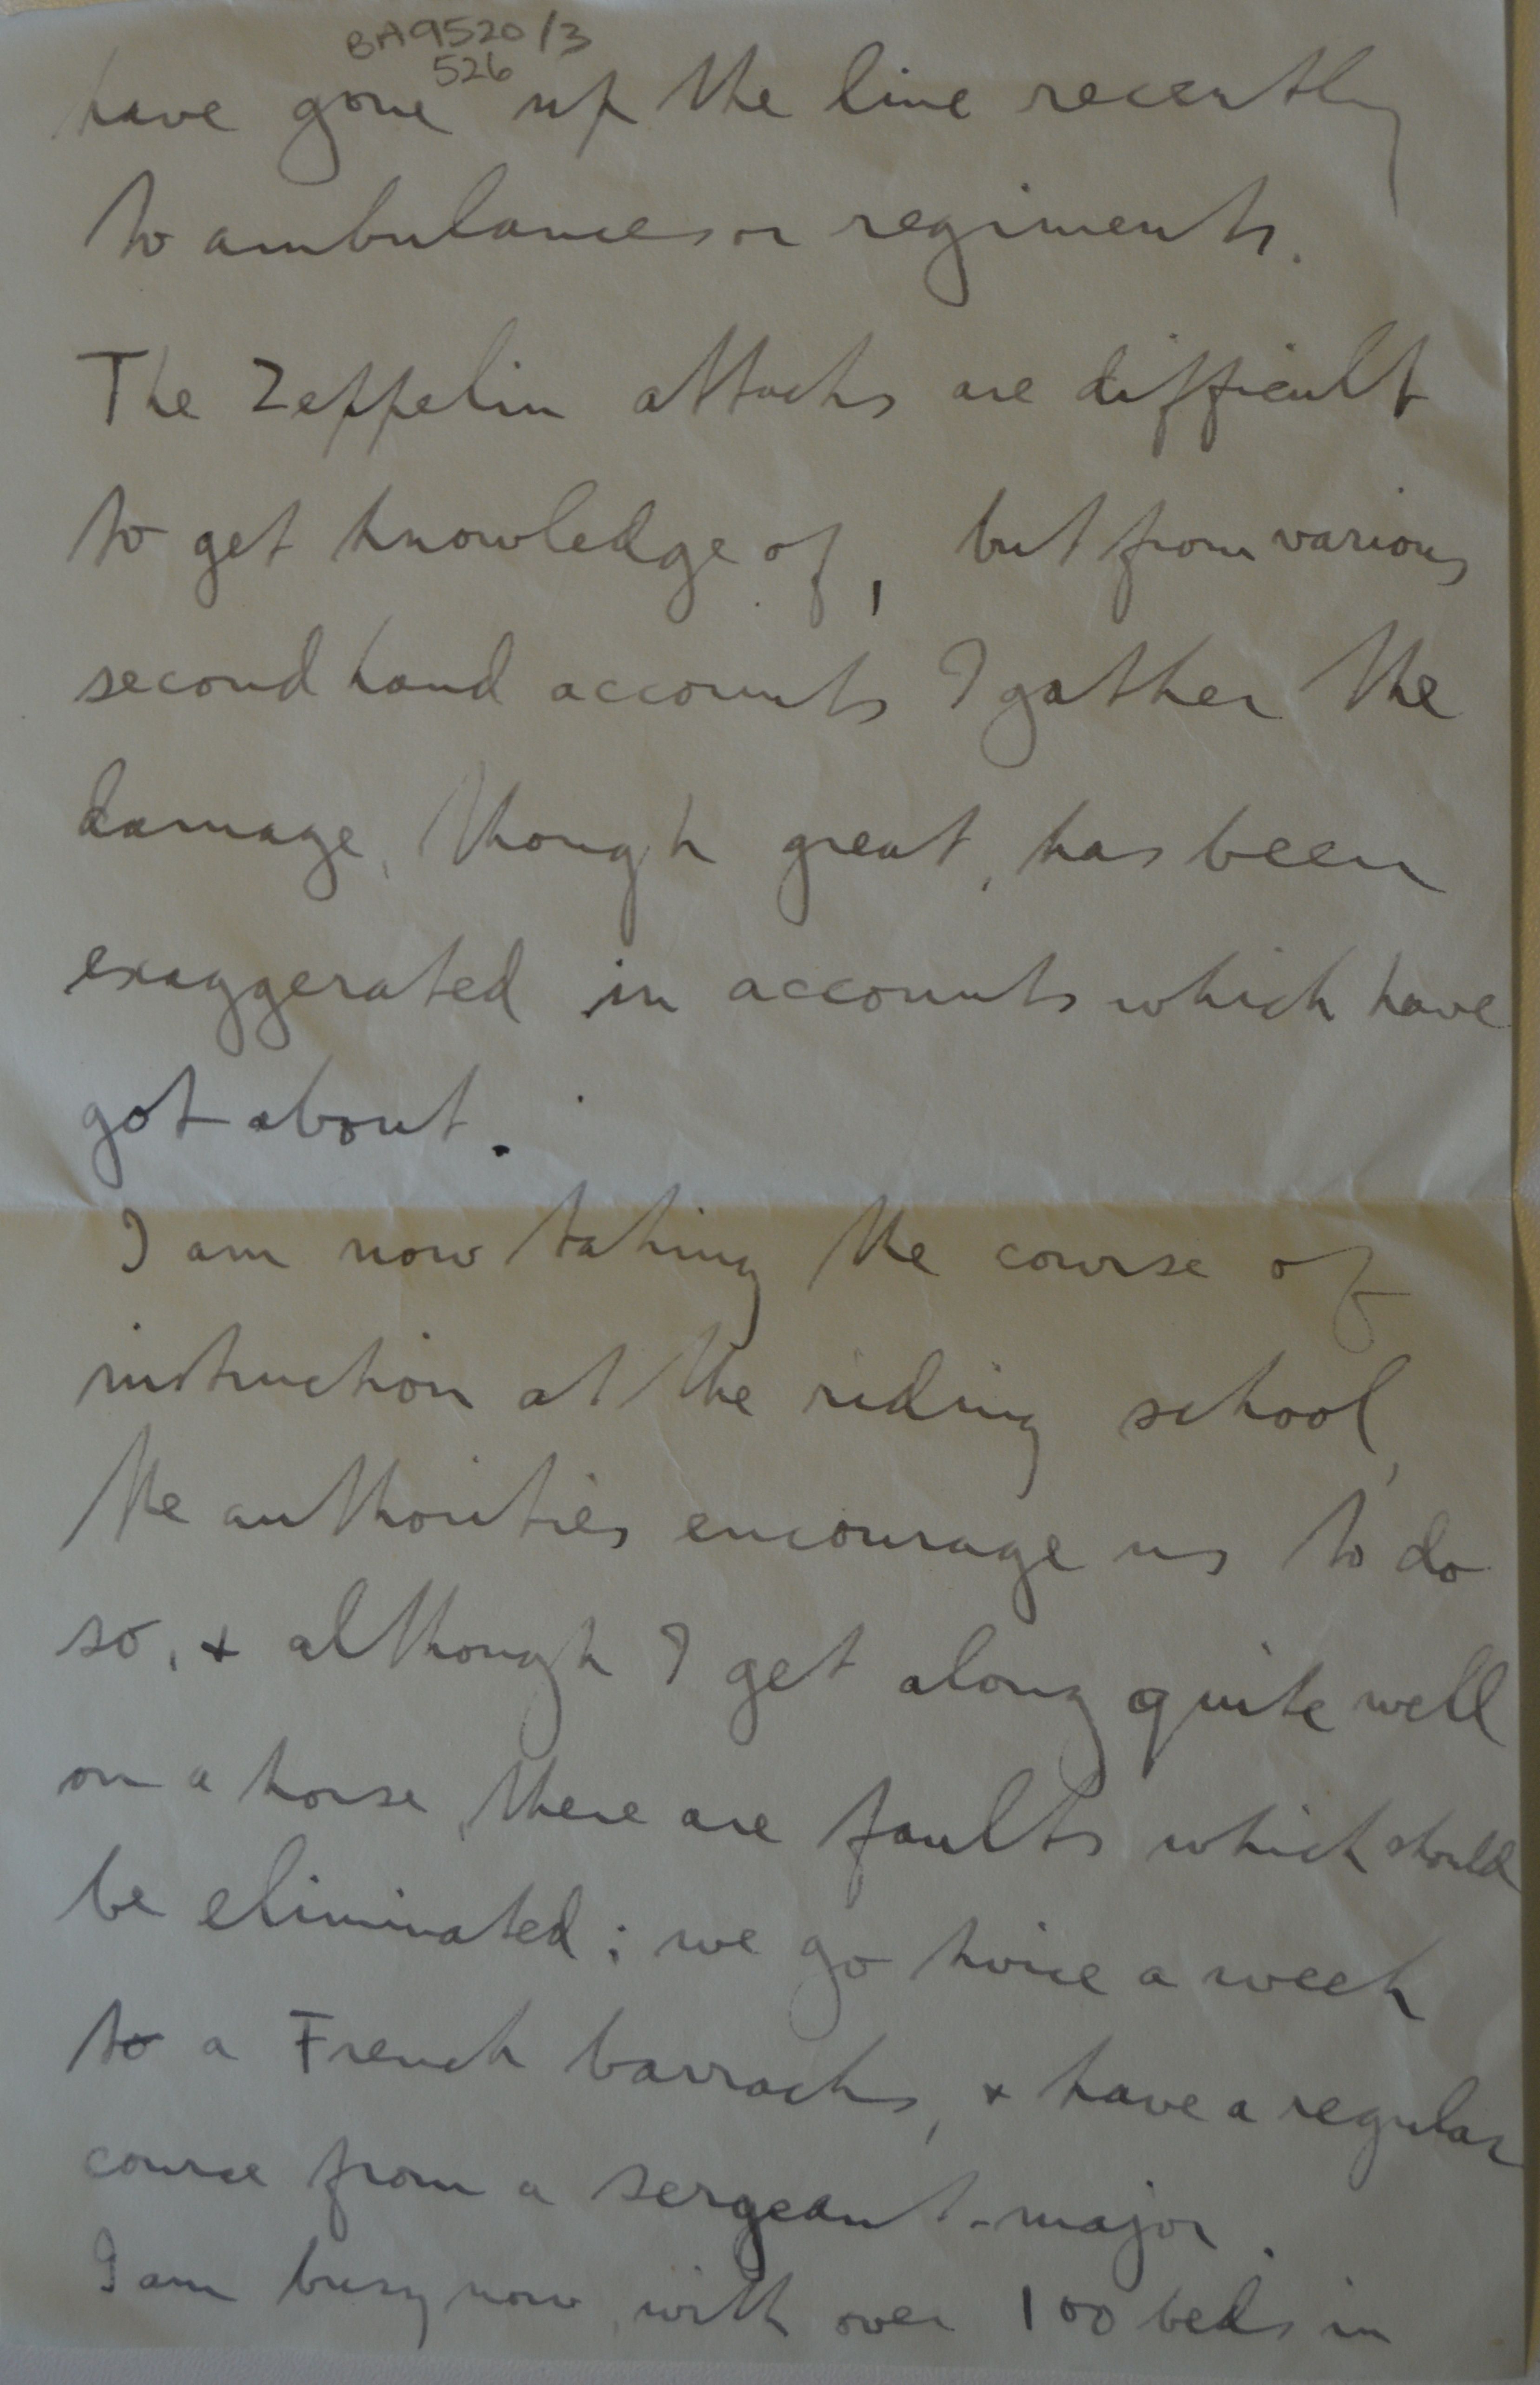 BA9520/3
526
have gone up the line recently
to ambulances or regiments.
The Zeppelin attacks are difficult
to get knowledge of, but from various
second hand accounts I gather the
damage, though great, has been
exaggerated in accounts which have
got about.
I am now taking the course of
instruction at the riding school,
the authorities encourage us to do
so, + although I get along quite well
on a horse, there are faults which should
be eliminated; we go twice a week
to a French barracks, + have a regular
course from a sergeant-major.
I am busy now, with over 100 beds in